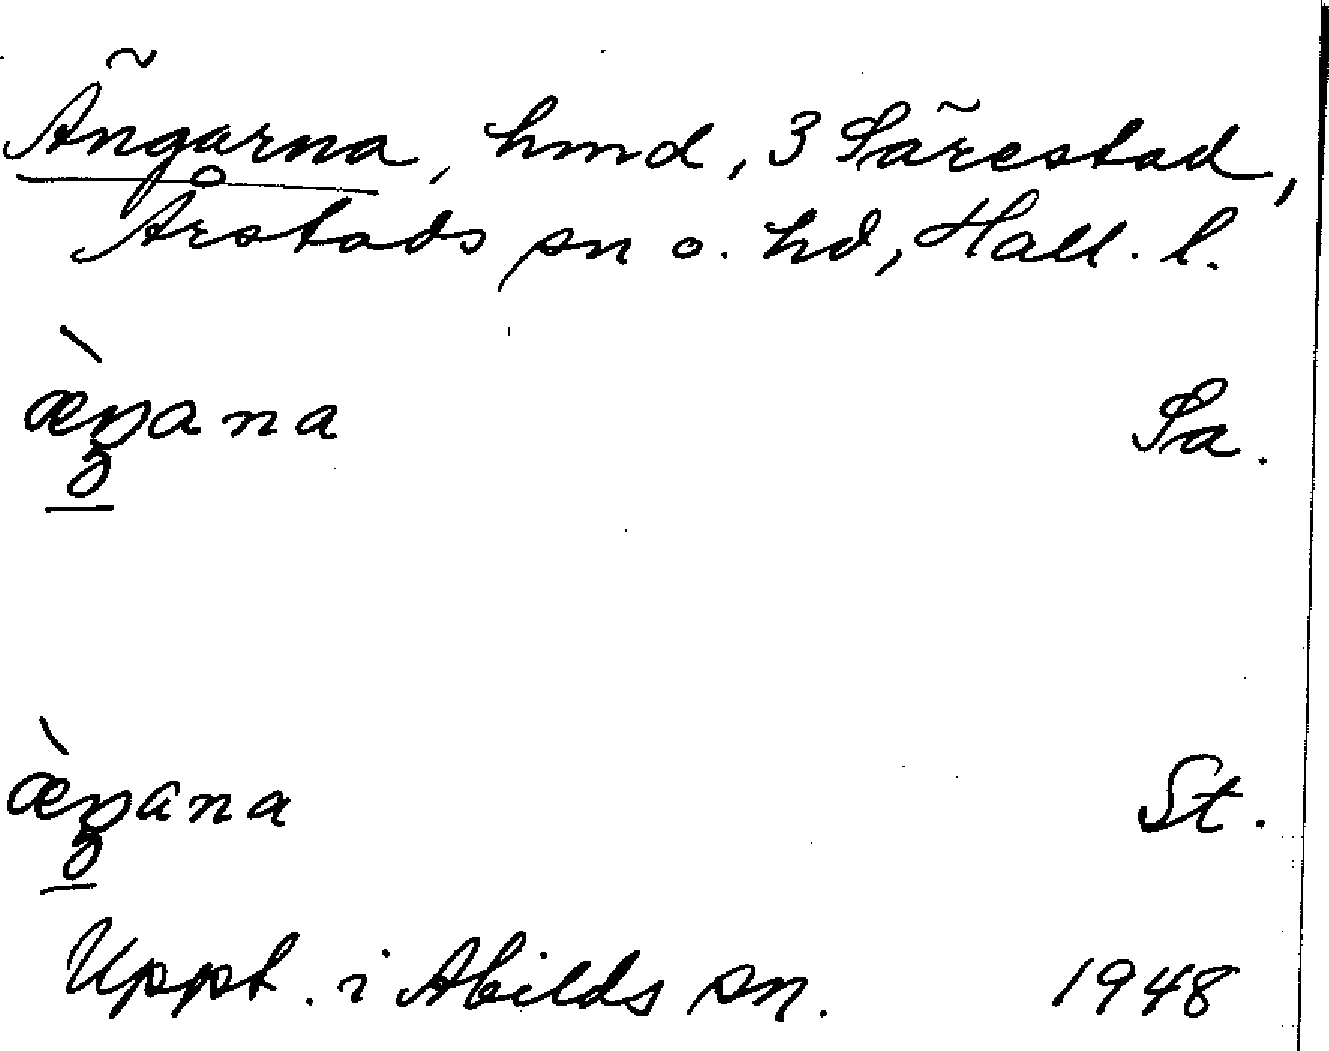 Ängarna, hmd, 3 Särestad,
Årstads sn o. hd, Hall. l.
æ̀ŋana Sa.
æ̀ŋana St.
Uppt. i Abilds sn. 1948